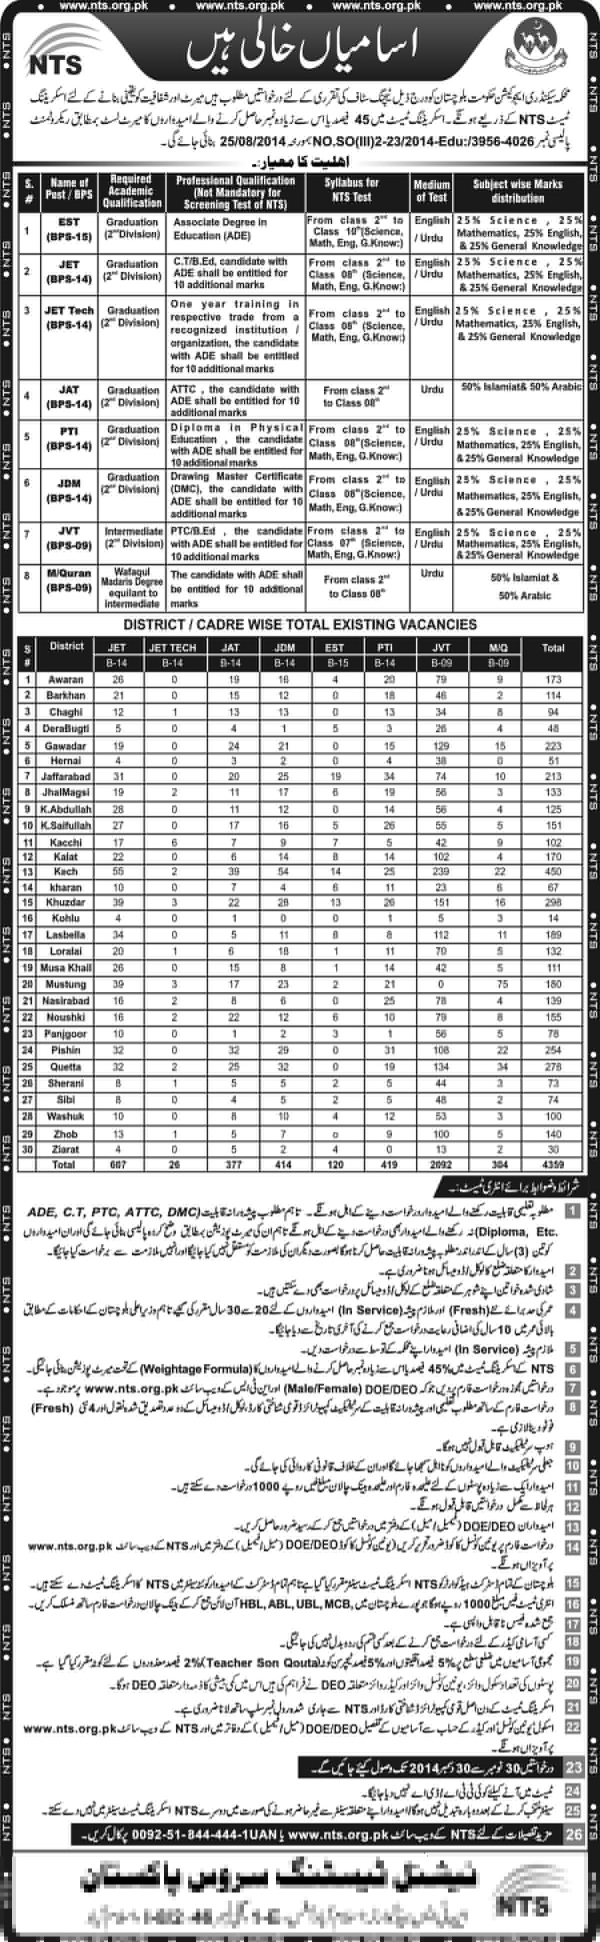 www.nts.org.pk • www.nts.org.pk • www.nts.org.pk • www.nts.org.pk
NTS
اسامیاں خالی ہیں
محکمہ سیکنڈری ایجوکیشن حکومت بلوچستان کو درج ذیل ٹیچنگ سٹاف کی تقرری کے لئے درخواستیں مطلوب ہیں میرٹ اور شفافیت کو یقینی بنانے کے لئے اسکریننگ
ٹیسٹ NTS کے ذریعے ہونگے۔ اسکریننگ ٹیسٹ میں 45 فیصد یا اس سے زیادہ نمبر حاصل کرنے والے امیدواروں کا میرٹ لسٹ بمطابق ریکروٹمنٹ
پالیسی نمبر NO.SO(III)2-23/2014-Edu:/3956-4026 مورخہ 25/08/2014 بنائی جائے گی۔
اہلیت کا معیار:۔
S. # | Name of Post / BPS | Required Academic Qualification | Professional Qualification (Not Mandatory for Screening Test of NTS) | Syllabus for NTS Test | Medium of Test | Subject wise Marks distribution
1 | EST (BPS-15) | Graduation (2nd Division) | Associate Degree in Education (ADE) | From class 2nd to Class 10th (Science, Math, Eng, G.Know:) | English / Urdu | 25% Science , 25% Mathematics, 25% English, & 25% General Knowledge
2 | JET (BPS-14) | Graduation (2nd Division) | C.T/B.Ed, candidate with ADE shall be entitled for 10 additional marks | From class 2nd to Class 08th (Science, Math, Eng, G.Know:) | English / Urdu | 25% Science , 25% Mathematics, 25% English, & 25% General Knowledge
3 | JET Tech (BPS-14) | Graduation (2nd Division) | One year training in respective trade from a recognized institution / organization, the candidate with ADE shall be entitled for 10 additional marks | From class 2nd to Class 08th (Science, Math, Eng, G.Know:) | English / Urdu | 25% Science , 25% Mathematics, 25% English, & 25% General Knowledge
4 | JAT (BPS-14) | Graduation (2nd Division) | ATTC , the candidate with ADE shall be entitled for 10 additional marks | From class 2nd to Class 08th | Urdu | 50% Islamiat& 50% Arabic
5 | PTI (BPS-14) | Graduation (2nd Division) | Diploma in Physical Education , the candidate with ADE shall be entitled for 10 additional marks | From class 2nd to Class 08th (Science, Math, Eng, G.Know:) | English / Urdu | 25% Science , 25% Mathematics, 25% English, & 25% General Knowledge
6 | JDM (BPS-14) | Graduation (2nd Division) | Drawing Master Certificate (DMC), the candidate with ADE shall be entitled for 10 additional marks | From class 2nd to Class 08th (Science, Math, Eng, G.Know:) | English / Urdu | 25% Science , 25% Mathematics, 25% English, & 25% General Knowledge
7 | JVT (BPS-09) | Intermediate (2nd Division) | PTC/B.Ed , the candidate with ADE shall be entitled for 10 additional marks | From class 2nd to Class 07th (Science, Math, Eng, G.Know:) | English / Urdu | 25% Science , 25% Mathematics, 25% English, & 25% General Knowledge
8 | M/Quran (BPS-09) | Wafaqul Madaris Degree equilant to intermediate | The candidate with ADE shall be entitled for 10 additional marks | From class 2nd to Class 08th | Urdu | 50% Islamiat & 50% Arabic
DISTRICT / CADRE WISE TOTAL EXISTING VACANCIES
S # | District | JET B-14 | JET TECH B-14 | JAT B-14 | JDM B-14 | EST B-15 | PTI B-14 | JVT B-09 | M/Q B-09 | Total
1 Awaran 26 0 19 16 4 20 79 9 173
2 Barkhan 21 0 15 12 0 18 46 2 114
3 Chaghi 12 1 13 13 0 13 34 8 94
4 DeraBugti 5 0 4 1 5 3 26 4 48
5 Gawadar 19 0 24 21 0 15 129 15 223
6 Hernai 4 0 3 2 0 4 38 0 51
7 Jaffarabad 31 0 20 25 19 34 74 10 213
8 JhalMagsi 19 2 11 17 6 19 56 3 133
9 K.Abdullah 28 0 11 12 0 14 56 4 125
10 K.Saifullah 27 0 17 16 5 26 55 5 151
11 Kacchi 17 6 7 9 7 5 42 9 102
12 Kalat 22 0 6 14 8 14 102 4 170
13 Kech 55 2 39 54 14 25 239 22 450
14 kharan 10 0 7 4 6 11 23 6 67
15 Khuzdar 39 3 22 28 13 26 151 16 298
16 Kohlu 4 0 1 0 0 1 5 3 14
17 Lasbella 34 0 5 11 8 8 112 11 189
18 Loralai 20 1 6 18 1 11 70 5 132
19 Musa Khail 26 0 15 8 1 14 42 5 111
20 Mustung 39 3 17 23 2 21 0 75 180
21 Nasirabad 16 2 8 6 0 25 78 4 139
22 Noushki 16 2 22 12 6 10 79 8 155
23 Panjgoor 10 0 1 2 3 1 56 5 78
24 Pishin 32 0 32 29 0 31 108 22 254
25 Quetta 32 2 25 32 0 19 134 34 278
26 Sherani 8 1 5 5 2 5 44 3 73
27 Sibi 8 0 4 5 2 5 48 2 74
28 Washuk 10 0 8 10 4 12 53 3 100
29 Zhob 13 1 5 7 0 9 100 5 140
30 Ziarat 4 0 5 2 4 0 13 2 30
Total 607 26 377 414 120 419 2092 304 4359
شرائط و ضوابط برائے انٹری ٹیسٹ:۔
1 مطلوبہ تعلیمی قابلیت رکھنے والے امیدوار درخواست دینے کے اہل ہونگے۔ تاہم مطلوبہ پیشہ ورانہ قابلیت (ADE, C.T, PTC, ATTC, DMC
Diploma, Etc.) نہ رکھنے والے امیدوار بھی درخواست دینے کے اہل ہونگے
کو تین (3) سال کے اندر اندر مطلوبہ پیشہ ورانہ قابلیت حاصل کرنا ہوگا بصورت دیگر ان کی ملازمت کو مستقل نہیں کیا جائیگا اور انہیں ملازمت سے برخواست کیا جائیگا۔
2 امیدوار کا متعلقہ ضلع کا لوکل / ڈومیسائل ہونا ضروری ہے۔
3 شادی شدہ خواتین اپنے شوہر کے متعلقہ ضلع کے لوکل / ڈومیسائل پر درخواست بھی دے سکتیں ہیں۔
4 عمر کی حد برائے نئے (Fresh) اور ملازم پیشہ (In Service) امیدواروں کے لئے 20 سے 30 سال مقرر کی گئی ہے تاہم وزیر اعلیٰ بلوچستان کے احکامات کے مطابق
بالائی عمر میں 10 سال کی اضافی رعایت درخواست جمع کرنے کی آخری تاریخ سے دیا جائیگا۔
5 ملازم پیشہ (In Service) امیدوار اپنے محکمہ کے توسط سے درخواست دیں۔
6 NTS کے اسکریننگ ٹیسٹ میں 45% فیصد یا اس سے زیادہ نمبر حاصل کرنے والے امیدواروں کا (Weightage Formula) کے تحت میرٹ پوزیشن بنائی جائیگی۔
7 درخواستیں مجوزہ درخواست فارم پر دیں جو کہ DOE/DEO (Male/Female) اور این ٹی ایس کے ویب سائٹ www.nts.org.pk پر موجود ہے۔
8 درخواست فارم کے ساتھ مطلوبہ تعلیمی اور پیشہ ورانہ قابلیت کے سرٹیفکیٹ کمپیوٹرائزڈ قومی شناختی کارڈ، لوکل / ڈومیسائل کے دو عدد تصدیق شدہ نقول اور 4 نئی (Fresh)
فوٹو دینا لازمی ہے۔
9 ہوپ سرٹیفکیٹ قابل قبول نہیں ہوگا۔
10 جعلی سرٹیفکیٹ والے امیدواروں کو نااہل سمجھا جائے گا اور ان کے خلاف قانونی کاروائی کی جائے گی۔
11 امیدوار ایک سے زیادہ پوسٹوں کے لئے علیحدہ فارم اور علیحدہ بینک چالان مبلغ فیس روپے 1000 درخواست دے سکتے ہیں۔
12 ہر لحاظ سے مکمل درخواستیں قابل قبول ہونگے۔
13 امیدواران DOE/DEO (میل / فیمیل) کے دفتر میں درخواستیں جمع کر کے رسید ضرور حاصل کریں۔
14 درخواست فارم پر یونین کونسل کا کوڈ ضرور تحریر کریں (یونین کونسل کا کوڈ DOE/DEO (میل / فیمیل) کے دفتر میں اور NTS کے ویب سائٹ www.nts.org.pk
پر آویزاں ہونگے۔
15 بلوچستان کے تمام ڈسٹرکٹ ہیڈ کوارٹر کو NTS اسکریننگ ٹیسٹ سینٹر مقرر کیا گیا ہے تاہم تمام ڈسٹرکٹ کے امیدوار کوئٹہ سینٹر میں NTS کا اسکریننگ ٹیسٹ دے سکتے ہیں۔
16 انٹری ٹیسٹ فیس مبلغ 1000 روپے ہوگا جو پورے بلوچستان میں HBL, ABL, UBL, MCB, آن لائن جمع کر کے بینک چالان درخواست فارم کے ساتھ منسلک کریں۔
17 جمع شدہ فیس ناقابل واپسی ہے۔
18 کسی آسامی کیڈر کے لئے درخواست جمع کرنے کے بعد کسی قسم کی ردوبدل نہیں کی جائیگی۔
19 مجموعی آسامیوں میں ضلعی سطح پر 5% فیصد اقلیتوں اور 5% فیصد ٹیچر سن کوٹہ (Teacher Son Qouta) 2% فیصد معذوروں کے لئے کوٹہ مقرر کیا گیا ہے۔
20
21 اسکریننگ ٹیسٹ کے دن اصل قومی کمپیوٹرائزڈ شناختی کارڈ اور NTS سے جاری شدہ رول نمبر سلپ ساتھ لانا ضروری ہے۔
22 اسکول / یونین کونسل اور کیڈر کے حساب سے آسامیوں کے تفصیل DOE/DEO (میل / فیمیل) کے دفاتر میں اور NTS کے ویب سائٹ www.nts.org.pk
پر آویزاں ہونگے۔
23 درخواستیں 30 نومبر سے 30 دسمبر 2014 تک وصول کیئے جائیں گے۔
24 ٹیسٹ میں آنے کیلئے کوئی ٹی اے / ڈی اے نہیں دیا جائیگا۔
25
26 مزید تفصیلات کے لئے NTS کے ویب سائٹ www.nts.org.pk یا 0092-51-844-444-1UAN پر کال کریں۔
نیشنل ٹیسٹنگ سروس پاکستان
NTS